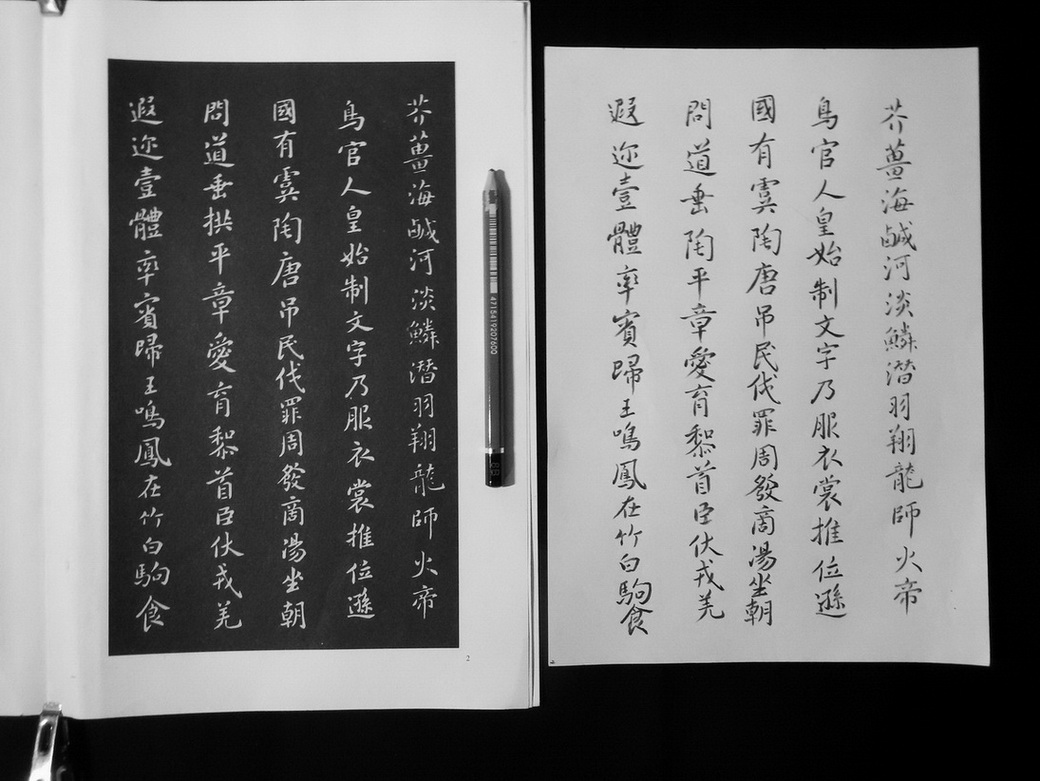 芥薑海鹹河淡鱗潜羽翔龍師火帝
鳥官人皇始制文字乃服衣裳推位遜
國有虞陶唐吊民伐罪周發商湯坐朝
問道垂拱平章愛育黎首臣伏戎羌
遐迩壹體率賓歸王鳴鳳在竹白駒食
2
4715419207600
8B
芥薑海鹹河淡鱗潜羽翔龍師火帝
鳥官人皇始制文字乃服衣裳推位遜
國有虞陶唐吊民伐罪周發商湯坐朝
問道垂陶平章愛育黎首臣伏戎羌
遐迩壹體率賓歸王鳴鳳在竹白駒食